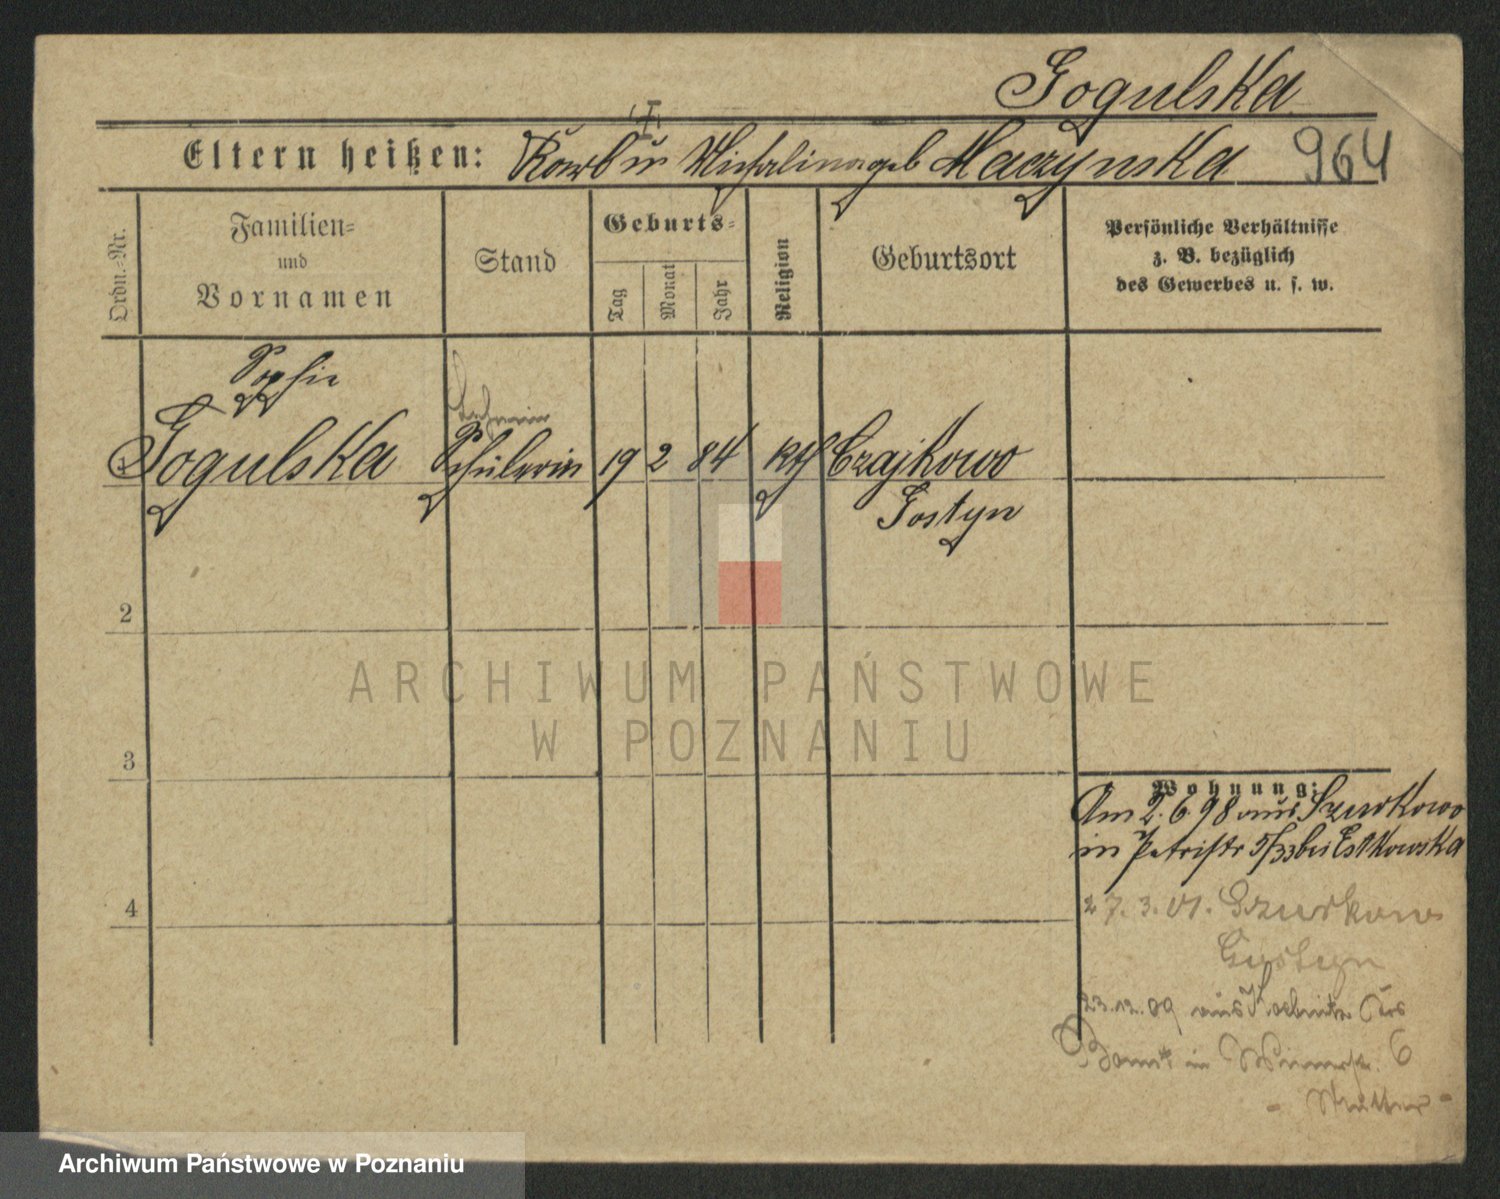 Gogulska
Eltern heißen: Karl u Michalina geb Maczynska 964
Ordn.-Nr.
Familien- und Vornamen
Stand
Geburts-
Tag
Monat
Jahr
Religion
Geburtsort
Persönliche Verhältnisse
z. B. bezüglich
des Gewerbes u. s. w.
Sophie
Gogulska Schülerin 19 2 84 kth Czajkowo
Gostyn
2
3
4
Wohnung:
Am 2.6.98 aus Szurkowo
in Petristr 5/33 bei Estkowska
27.3.01. Szurkowo
Gostyn
23.12.09 aus Koebnitz Krs
Bomst in 6
- Mutter -
ARCHIWUM PAŃSTWOWE
W POZNANIU
Archiwum Państwowe w Poznaniu